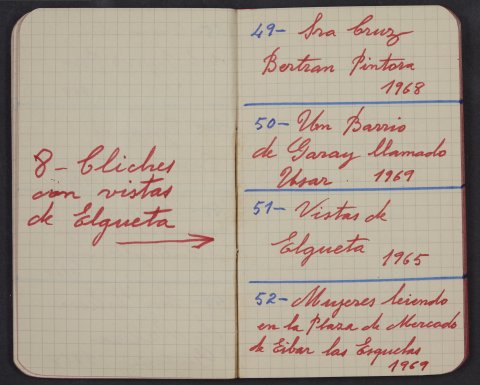 8- Cliches
con vistas
de Elgueta
49- Sra Cruz
Bertran Pintora
1968
50- Un Barrio
de Garay llamado
Usar 1969
51- Vistas de
Elgueta 1965
52- Mujeres leiendo
en la Plaza de Mercado
de Eibar las Esquelas
1969